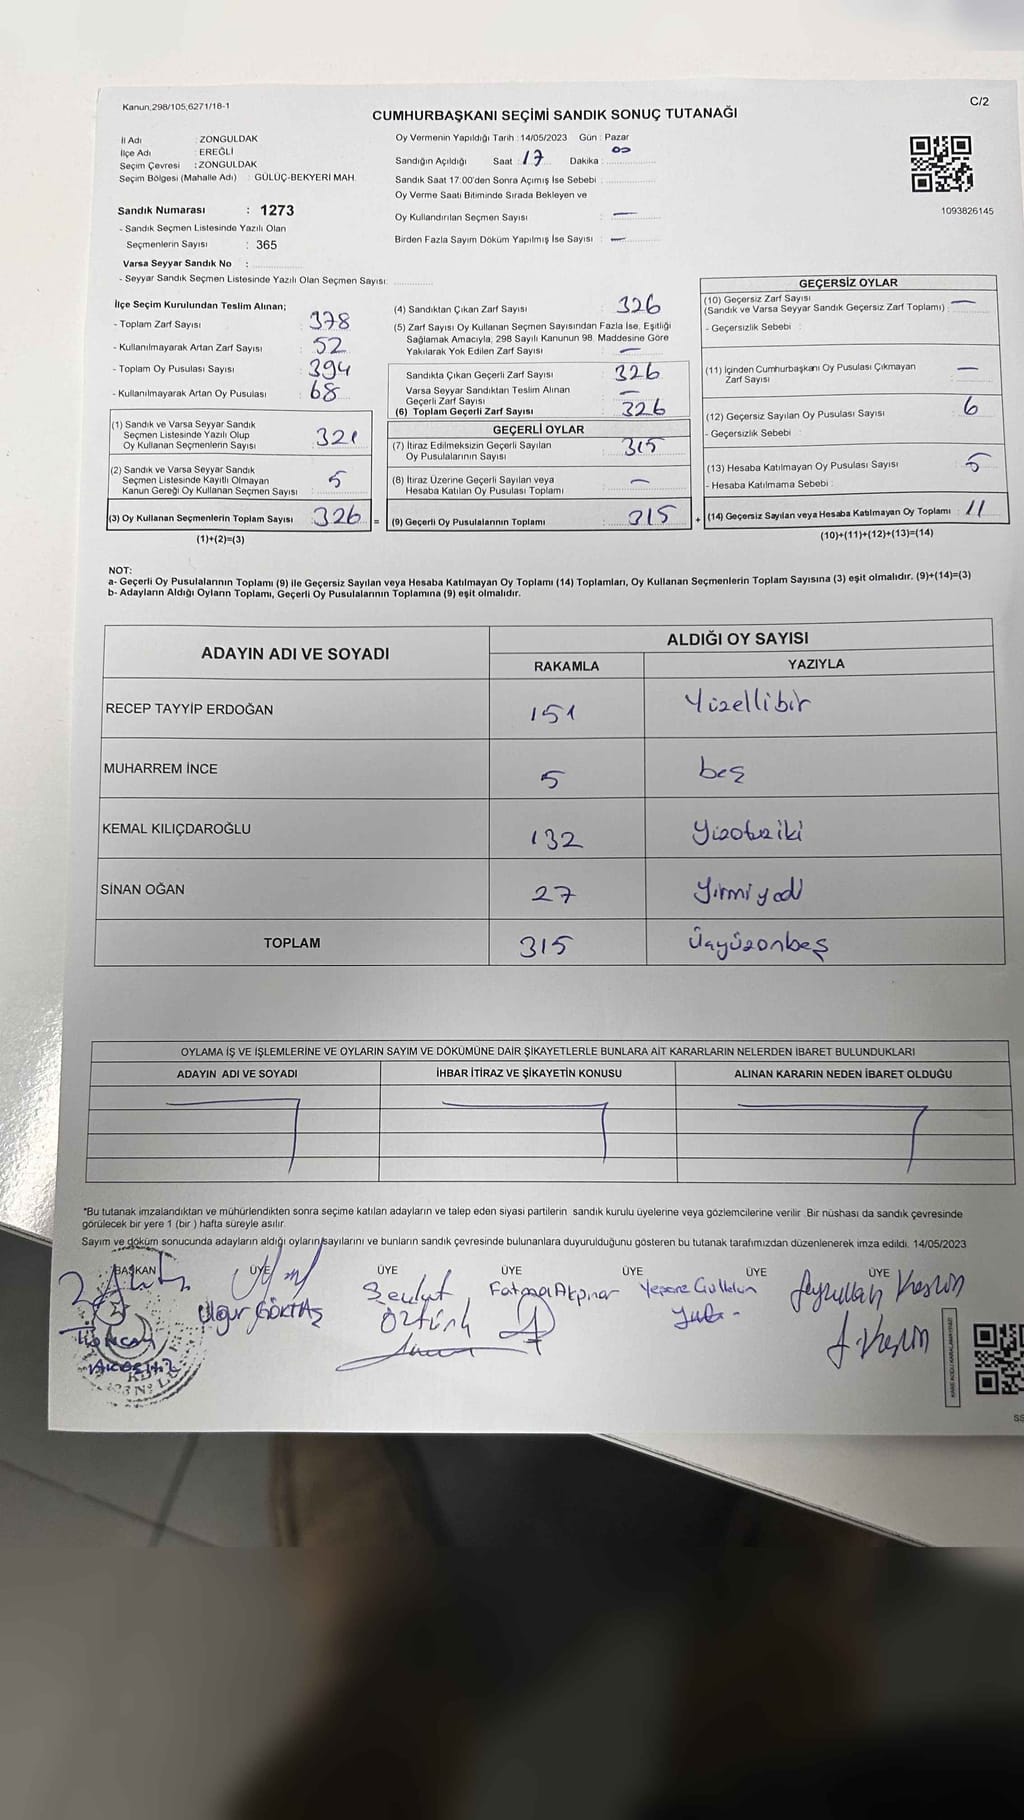 Kanun,298/105,6271/18-1
C/2
CUMHURBAŞKANI SEÇİMİ SANDIK SONUÇ TUTANAĞI
İl Adı : ZONGULDAK
İlçe Adı : EREĞLİ
Seçim Çevresi : ZONGULDAK
Seçim Bölgesi (Mahalle Adı) : GÜLÜÇ-BEKYERİ MAH.
Sandık Numarası : 1273
- Sandık Seçmen Listesinde Yazılı Olan
Seçmenlerin Sayısı : 365
Varsa Seyyar Sandık No :
- Seyyar Sandık Seçmen Listesinde Yazılı Olan Seçmen Sayısı:
Oy Vermenin Yapıldığı Tarih : 14/05/2023 Gün : Pazar
Sandığın Açıldığı Saat : 17 Dakika : 00
Sandık Saat 17:00'den Sonra Açımış İse Sebebi :
Oy Verme Saati Bitiminde Sırada Bekleyen ve
Oy Kullandırılan Seçmen Sayısı : —
Birden Fazla Sayım Döküm Yapılmış İse Sayısı : —
1093826145
İlçe Seçim Kurulundan Teslim Alınan;
- Toplam Zarf Sayısı : 378
- Kullanılmayarak Artan Zarf Sayısı : 52
- Toplam Oy Pusulası Sayısı : 394
- Kullanılmayarak Artan Oy Pusulası : 68
(1) Sandık ve Varsa Seyyar Sandık
Seçmen Listesinde Yazılı Olup
Oy Kullanan Seçmenlerin Sayısı : 321
(2) Sandık ve Varsa Seyyar Sandık
Seçmen Listesinde Kayıtlı Olmayan
Kanun Gereği Oy Kullanan Seçmen Sayısı : 5
(3) Oy Kullanan Seçmenlerin Toplam Sayısı : 326 =
(1)+(2)=(3)
(4) Sandıktan Çıkan Zarf Sayısı : 326
(5) Zarf Sayısı Oy Kullanan Seçmen Sayısından Fazla İse, Eşitliği
Sağlamak Amacıyla, 298 Sayılı Kanunun 98. Maddesine Göre
Yakılarak Yok Edilen Zarf Sayısı : —
Sandıkta Çıkan Geçerli Zarf Sayısı : 326
Varsa Seyyar Sandıktan Teslim Alınan
Geçerli Zarf Sayısı : —
(6) Toplam Geçerli Zarf Sayısı : 326
GEÇERLİ OYLAR
(7) İtiraz Edilmeksizin Geçerli Sayılan
Oy Pusulalarının Sayısı : 315
(8) İtiraz Üzerine Geçerli Sayılan veya
Hesaba Katılan Oy Pusulası Toplamı : —
(9) Geçerli Oy Pusulalarının Toplamı : 315 +
GEÇERSİZ OYLAR
(10) Geçersiz Zarf Sayısı
(Sandık ve Varsa Seyyar Sandık Geçersiz Zarf Toplamı) : —
- Geçersizlik Sebebi :
(11) İçinden Cumhurbaşkanı Oy Pusulası Çıkmayan
Zarf Sayısı : —
(12) Geçersiz Sayılan Oy Pusulası Sayısı : 6
- Geçersizlik Sebebi :
(13) Hesaba Katılmayan Oy Pusulası Sayısı : 5
- Hesaba Katılmama Sebebi :
(14) Geçersiz Sayılan veya Hesaba Katılmayan Oy Toplamı : 11
(10)+(11)+(12)+(13)=(14)
NOT:
a- Geçerli Oy Pusulalarının Toplamı (9) ile Geçersiz Sayılan veya Hesaba Katılmayan Oy Toplamı (14) Toplamları, Oy Kullanan Seçmenlerin Toplam Sayısına (3) eşit olmalıdır. (9)+(14)=(3)
b- Adayların Aldığı Oyların Toplamı, Geçerli Oy Pusulalarının Toplamına (9) eşit olmalıdır.
ADAYIN ADI VE SOYADI ALDIĞI OY SAYISI
RAKAMLA YAZIYLA
RECEP TAYYİP ERDOĞAN 151 Yüzellibir
MUHARREM İNCE 5 beş
KEMAL KILIÇDAROĞLU 132 Yüzotuziki
SİNAN OĞAN 27 Yirmiyedi
TOPLAM 315 Üçyüzonbeş
OYLAMA İŞ VE İŞLEMLERİNE VE OYLARIN SAYIM VE DÖKÜMÜNE DAİR ŞİKAYETLERLE BUNLARA AİT KARARLARIN NELERDEN İBARET BULUNDUKLARI
ADAYIN ADI VE SOYADI İHBAR İTİRAZ VE ŞİKAYETİN KONUSU ALINAN KARARIN NEDEN İBARET OLDUĞU
*Bu tutanak imzalandıktan ve mühürlendikten sonra seçime katılan adayların ve talep eden siyasi partilerin sandık kurulu üyelerine veya gözlemcilerine verilir .Bir nüshası da sandık çevresinde
görülecek bir yere 1 (bir ) hafta süreyle asılır.
Sayım ve döküm sonucunda adayların aldığı oyların sayılarını ve bunların sandık çevresinde bulunanlara duyurulduğunu gösteren bu tutanak tarafımızdan düzenlenerek imza edildi. 14/05/2023
BAŞKAN ÜYE ÜYE ÜYE ÜYE ÜYE ÜYE
Uğur GÖKTAŞ
Fatma Akpınar
Öztürk
Keskin